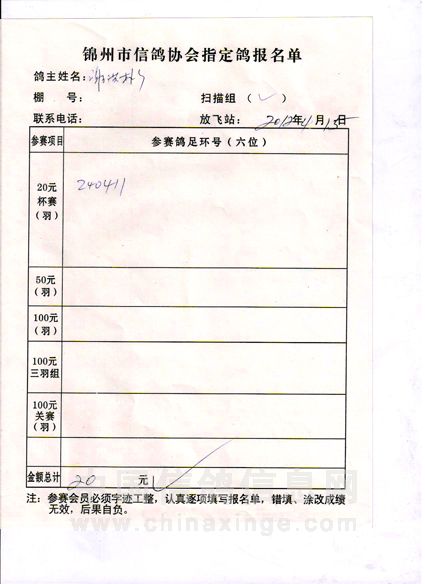 锦州市信鸽协会指定鸽报名单
鸽主姓名：
棚 号： 扫描组（✓）
联系电话： 放飞站： 2012年4月15日
参赛项目 参赛鸽足环号（六位）
20元
杯赛
（羽）
240411
50元
（羽）
100元
（羽）
100元
三羽组
100元
关赛
（羽）
金额总计 20 元 ✓
注：参赛会员必须字迹工整，认真逐项填写报名单，错填、涂改成绩
无效，后果自负。
中国信鸽信息网
www.chinaxinge.com